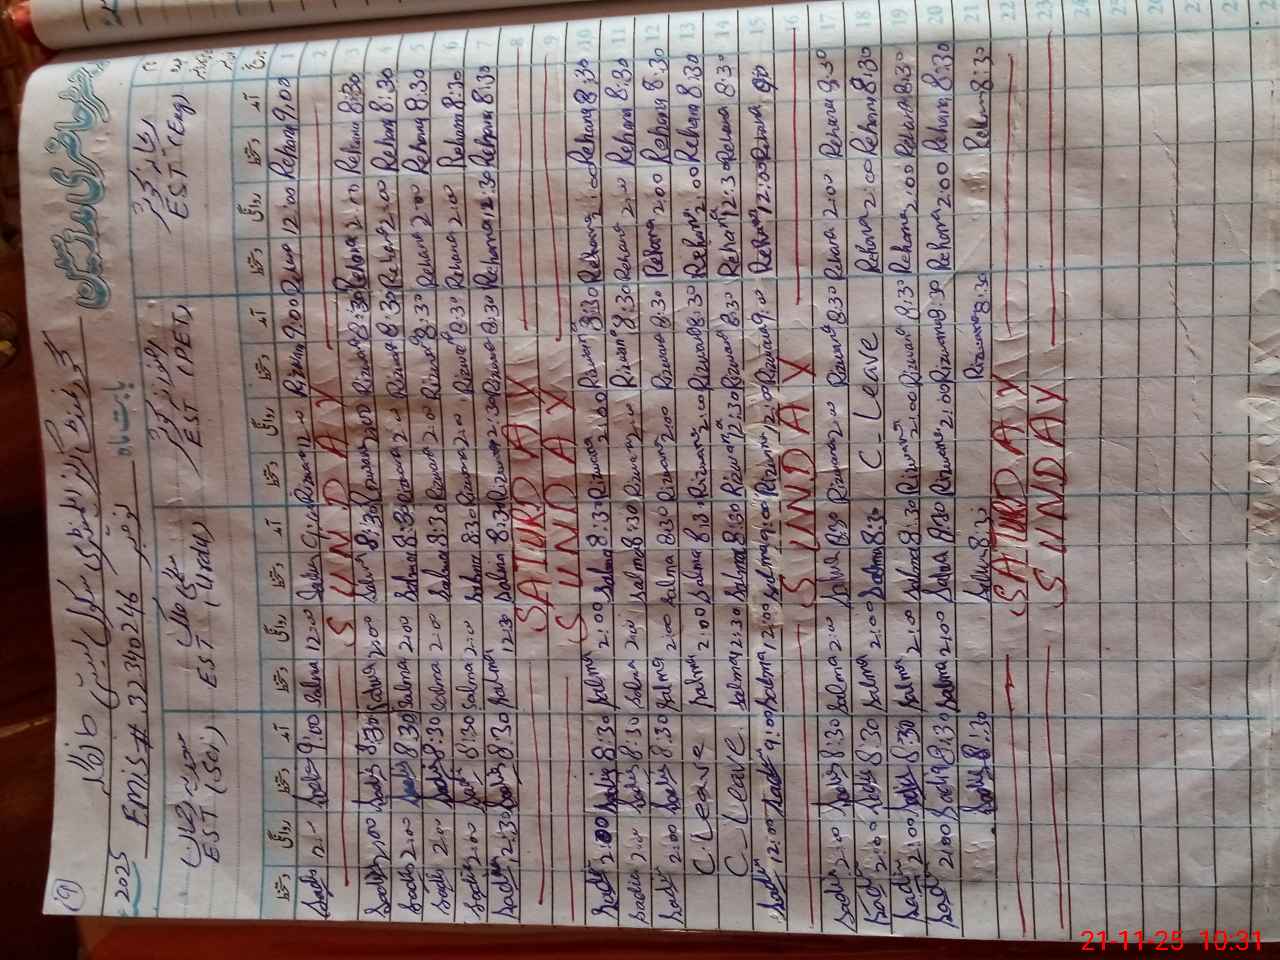 رجسٹر حاضری مدرسین
گورنمنٹ گرلز ایلیمنٹری سکول
بابت ماہ نومبر 2025
Emis # 32340246
EST (Eng) EST (PET) EST (Urdu) EST (Sci)
آمد دستخط روانگی دستخط آمد دستخط روانگی دستخط آمد دستخط روانگی دستخط آمد دستخط روانگی دستخط
1 9:00 Rehana 12:00 Rehana 9:00 Rizwana 12:00 Rizwana 9:00 Salma 12:00 Salma 9:00 Sadia Sadia
2 SUNDAY
3 8:30 Rehana 2:00 Rehana 8:30 Rizwana 2:00 Rizwana 8:30 Salma 2:00 Salma 8:30 Sadia 2:00 Sadia
4 8:30 Rehana 2:00 Rehana 8:30 Rizwana 2:00 Rizwana 8:30 Salma 2:00 Salma 8:30 Sadia 2:00 Sadia
5 8:30 Rehana 2:00 Rehana 8:30 Rizwana 2:00 Rizwana 8:30 Salma 2:00 Salma 8:30 Sadia 2:00 Sadia
6 8:30 Rehana 2:00 Rehana 8:30 Rizwana 2:00 Rizwana 8:30 Salma 2:00 Salma 8:30 Sadia 2:00 Sadia
7 8:30 Rehana 12:30 Rehana 8:30 Rizwana 12:30 Rizwana 8:30 Salma 12:30 Salma 8:30 Sadia 12:30 Sadia
8 SATURDAY
9 SUNDAY
10 8:30 Rehana 2:00 Rehana 8:30 Rizwana 2:00 Rizwana 8:30 Salma 2:00 Salma 8:30 Sadia 2:00 Sadia
11 8:30 Rehana 2:00 Rehana 8:30 Rizwana 2:00 Rizwana 8:30 Salma 2:00 Salma 8:30 Sadia 2:00 Sadia
12 8:30 Rehana 2:00 Rehana 8:30 Rizwana 2:00 Rizwana 8:30 Salma 2:00 Salma 8:30 Sadia 2:00 Sadia
13 8:30 Rehana 2:00 Rehana 8:30 Rizwana 2:00 Rizwana 8:30 Salma 2:00 Salma C-Leave
14 8:30 Rehana 12:30 Rehana 8:30 Rizwana 12:30 Rizwana 8:30 Salma 12:30 Salma C-Leave
15 9:00 Rehana 12:00 Rehana 9:00 Rizwana 12:00 Rizwana 9:00 Salma 12:00 Salma 9:00 Sadia 12:00 Sadia
16 SUNDAY
17 8:30 Rehana 2:00 Rehana 8:30 Rizwana 2:00 Rizwana 8:30 Salma 2:00 Salma 8:30 Sadia 2:00 Sadia
18 8:30 Rehana 2:00 Rehana C-Leave 8:30 Salma 2:00 Salma 8:30 Sadia 2:00 Sadia
19 8:30 Rehana 2:00 Rehana 8:30 Rizwana 2:00 Rizwana 8:30 Salma 2:00 Salma 8:30 Sadia 2:00 Sadia
20 8:30 Rehana 2:00 Rehana 8:30 Rizwana 2:00 Rizwana 8:30 Salma 2:00 Salma 8:30 Sadia 2:00 Sadia
21 8:30 Rehana 8:30 Rizwana 8:30 Salma 8:30 Sadia
22 SATURDAY
23 SUNDAY
24
25
26
21-11-25 10:31